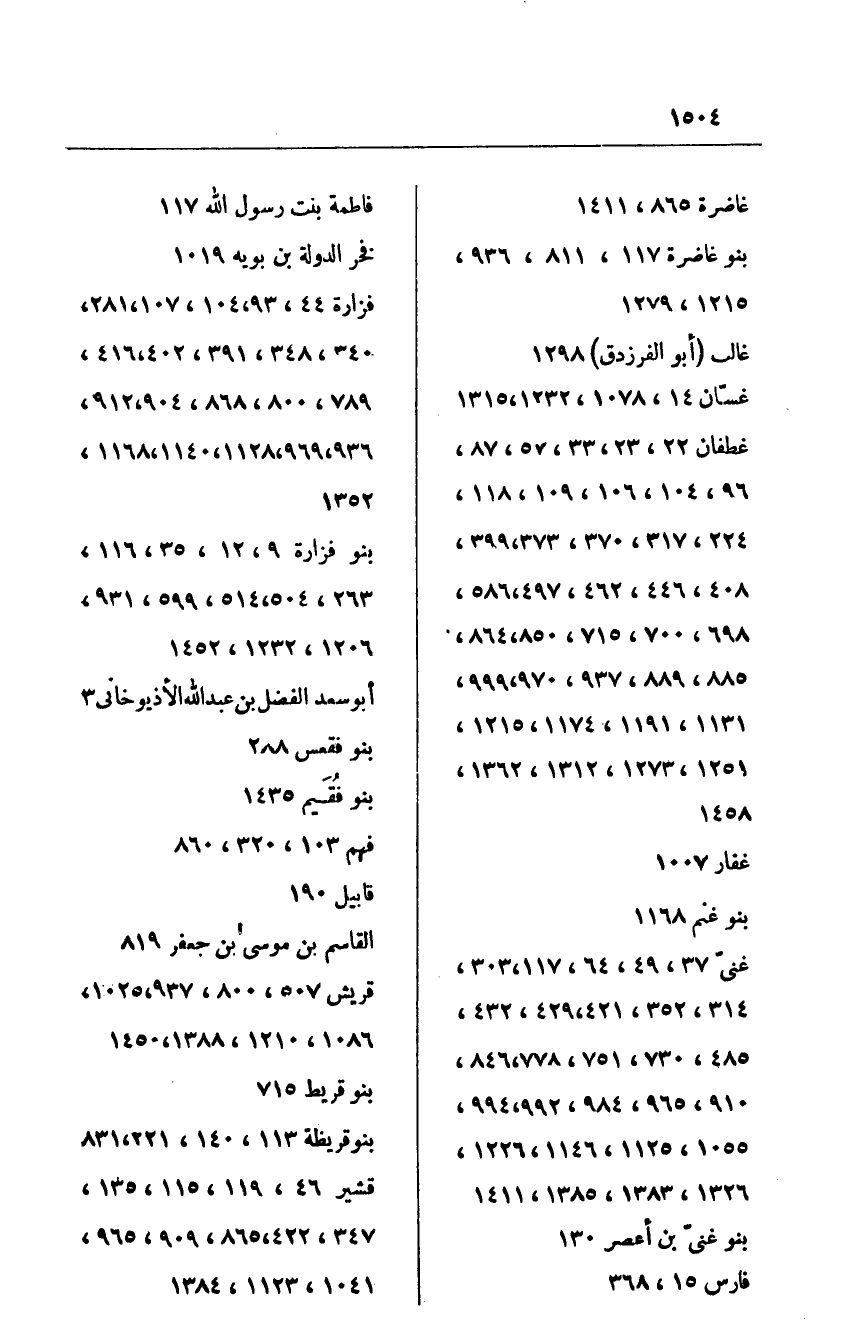 ١٥٠٤
غاضرة ٨٦٥ ، ١٤١١
بنو غاضرة ١١٧ ، ٨١١ ، ٩٣٦ ،
١٢١٥ ، ١٢٧٩
غالب (أبو الفرزدق) ١٢٩٨
غسّان ١٤ ، ١٠٧٨ ، ١٢٣٢،١٣١٥
غطفان ٢٢ ، ٢٣ ، ٣٣ ، ٥٧ ، ٨٧ ،
٩٦ ، ١٠٤ ، ١٠٦ ، ١٠٩ ، ١١٨ ،
٢٢٤ ، ٣١٧ ، ٣٧٠ ، ٣٧٣،٣٩٩ ،
٤٠٨ ، ٤٤٦ ، ٤٦٢ ، ٤٩٧،٥٨٦ ،
٦٩٨ ، ٧٠٠ ، ٧١٥ ، ٨٥٠،٨٦٤ ،
٨٨٥ ، ٨٨٩ ، ٩٣٧ ، ٩٧٠،٩٩٩ ،
١١٣١ ، ١١٩١ ، ١١٧٤ ، ١٢١٥ ،
١٢٥١ ، ١٢٧٣ ، ١٣١٢ ، ١٣٦٢ ،
١٤٥٨
غفار ١٠٠٧
بنو غنم ١١٦٨
غنىّ ٣٧ ، ٤٩ ، ٦٤ ، ١١٧،٣٠٣ ،
٣١٤ ، ٣٥٢ ، ٤٢١،٤٢٩ ، ٤٣٢ ،
٤٨٥ ، ٧٣٠ ، ٧٥١ ، ٧٧٨،٨٤٦ ،
٩١٠ ، ٩٦٥ ، ٩٨٤ ، ٩٩٢،٩٩٤ ،
١٠٥٥ ، ١١٢٥ ، ١١٤٦ ، ١٢٢٦ ،
١٣٢٦ ، ١٣٨٣ ، ١٣٨٥ ، ١٤١١
بنو غنىّ بن أعصر ١٣٠
فارس ١٥ ، ٣٦٨
فاطمة بنت رسول الله ١١٧
فخر الدولة بن بويه ١٠١٩
فزارة ٤٤ ، ٩٣،١٠٤ ، ١٠٧ ،٢٨١،
٣٤٠ ، ٣٤٨ ، ٣٩١ ، ٤٠٢،٤١٦ ،
٧٨٩ ، ٨٠٠ ، ٨٦٨ ، ٩٠٤،٩١٢،
٩٣٦،٩٦٩،١١٢٨،١١٤٠،١١٦٨ ،
١٣٥٢
بنو فزارة ٩ ، ١٢ ، ٣٥ ، ١١٦ ،
٢٦٣ ، ٥٠٤،٥١٤ ، ٥٩٩ ، ٩٣١ ،
١٢٠٦ ، ١٢٣٢ ، ١٤٥٢
أبو سعد الفضل بن عبد الله الأذيوخانى ٣
بنو فقعس ٢٨٨
بنو فُقَيم ١٤٣٥
فهم ١٠٣ ، ٣٢٠ ، ٨٦٠
قابيل ١٩٠
القاسم بن موسى بن جعفر ٨١٩
قريش ٥٠٧ ، ٨٠٠ ، ٩٣٧،١٠٢٥،
١٠٨٦ ، ١٢١٠ ، ١٣٨٨،١٤٥٠
بنو قريط ٧١٥
بنو قريظة ١١٣ ، ١٤٠ ، ٢٢١،٨٣١
قشير ٤٦ ، ١١٩ ، ١١٥ ، ١٣٥ ،
٣٤٧ ، ٤٢٢،٨٦٥ ، ٩٠٩ ، ٩٦٥ ،
١٠٤١ ، ١١٢٣ ، ١٣٨٤